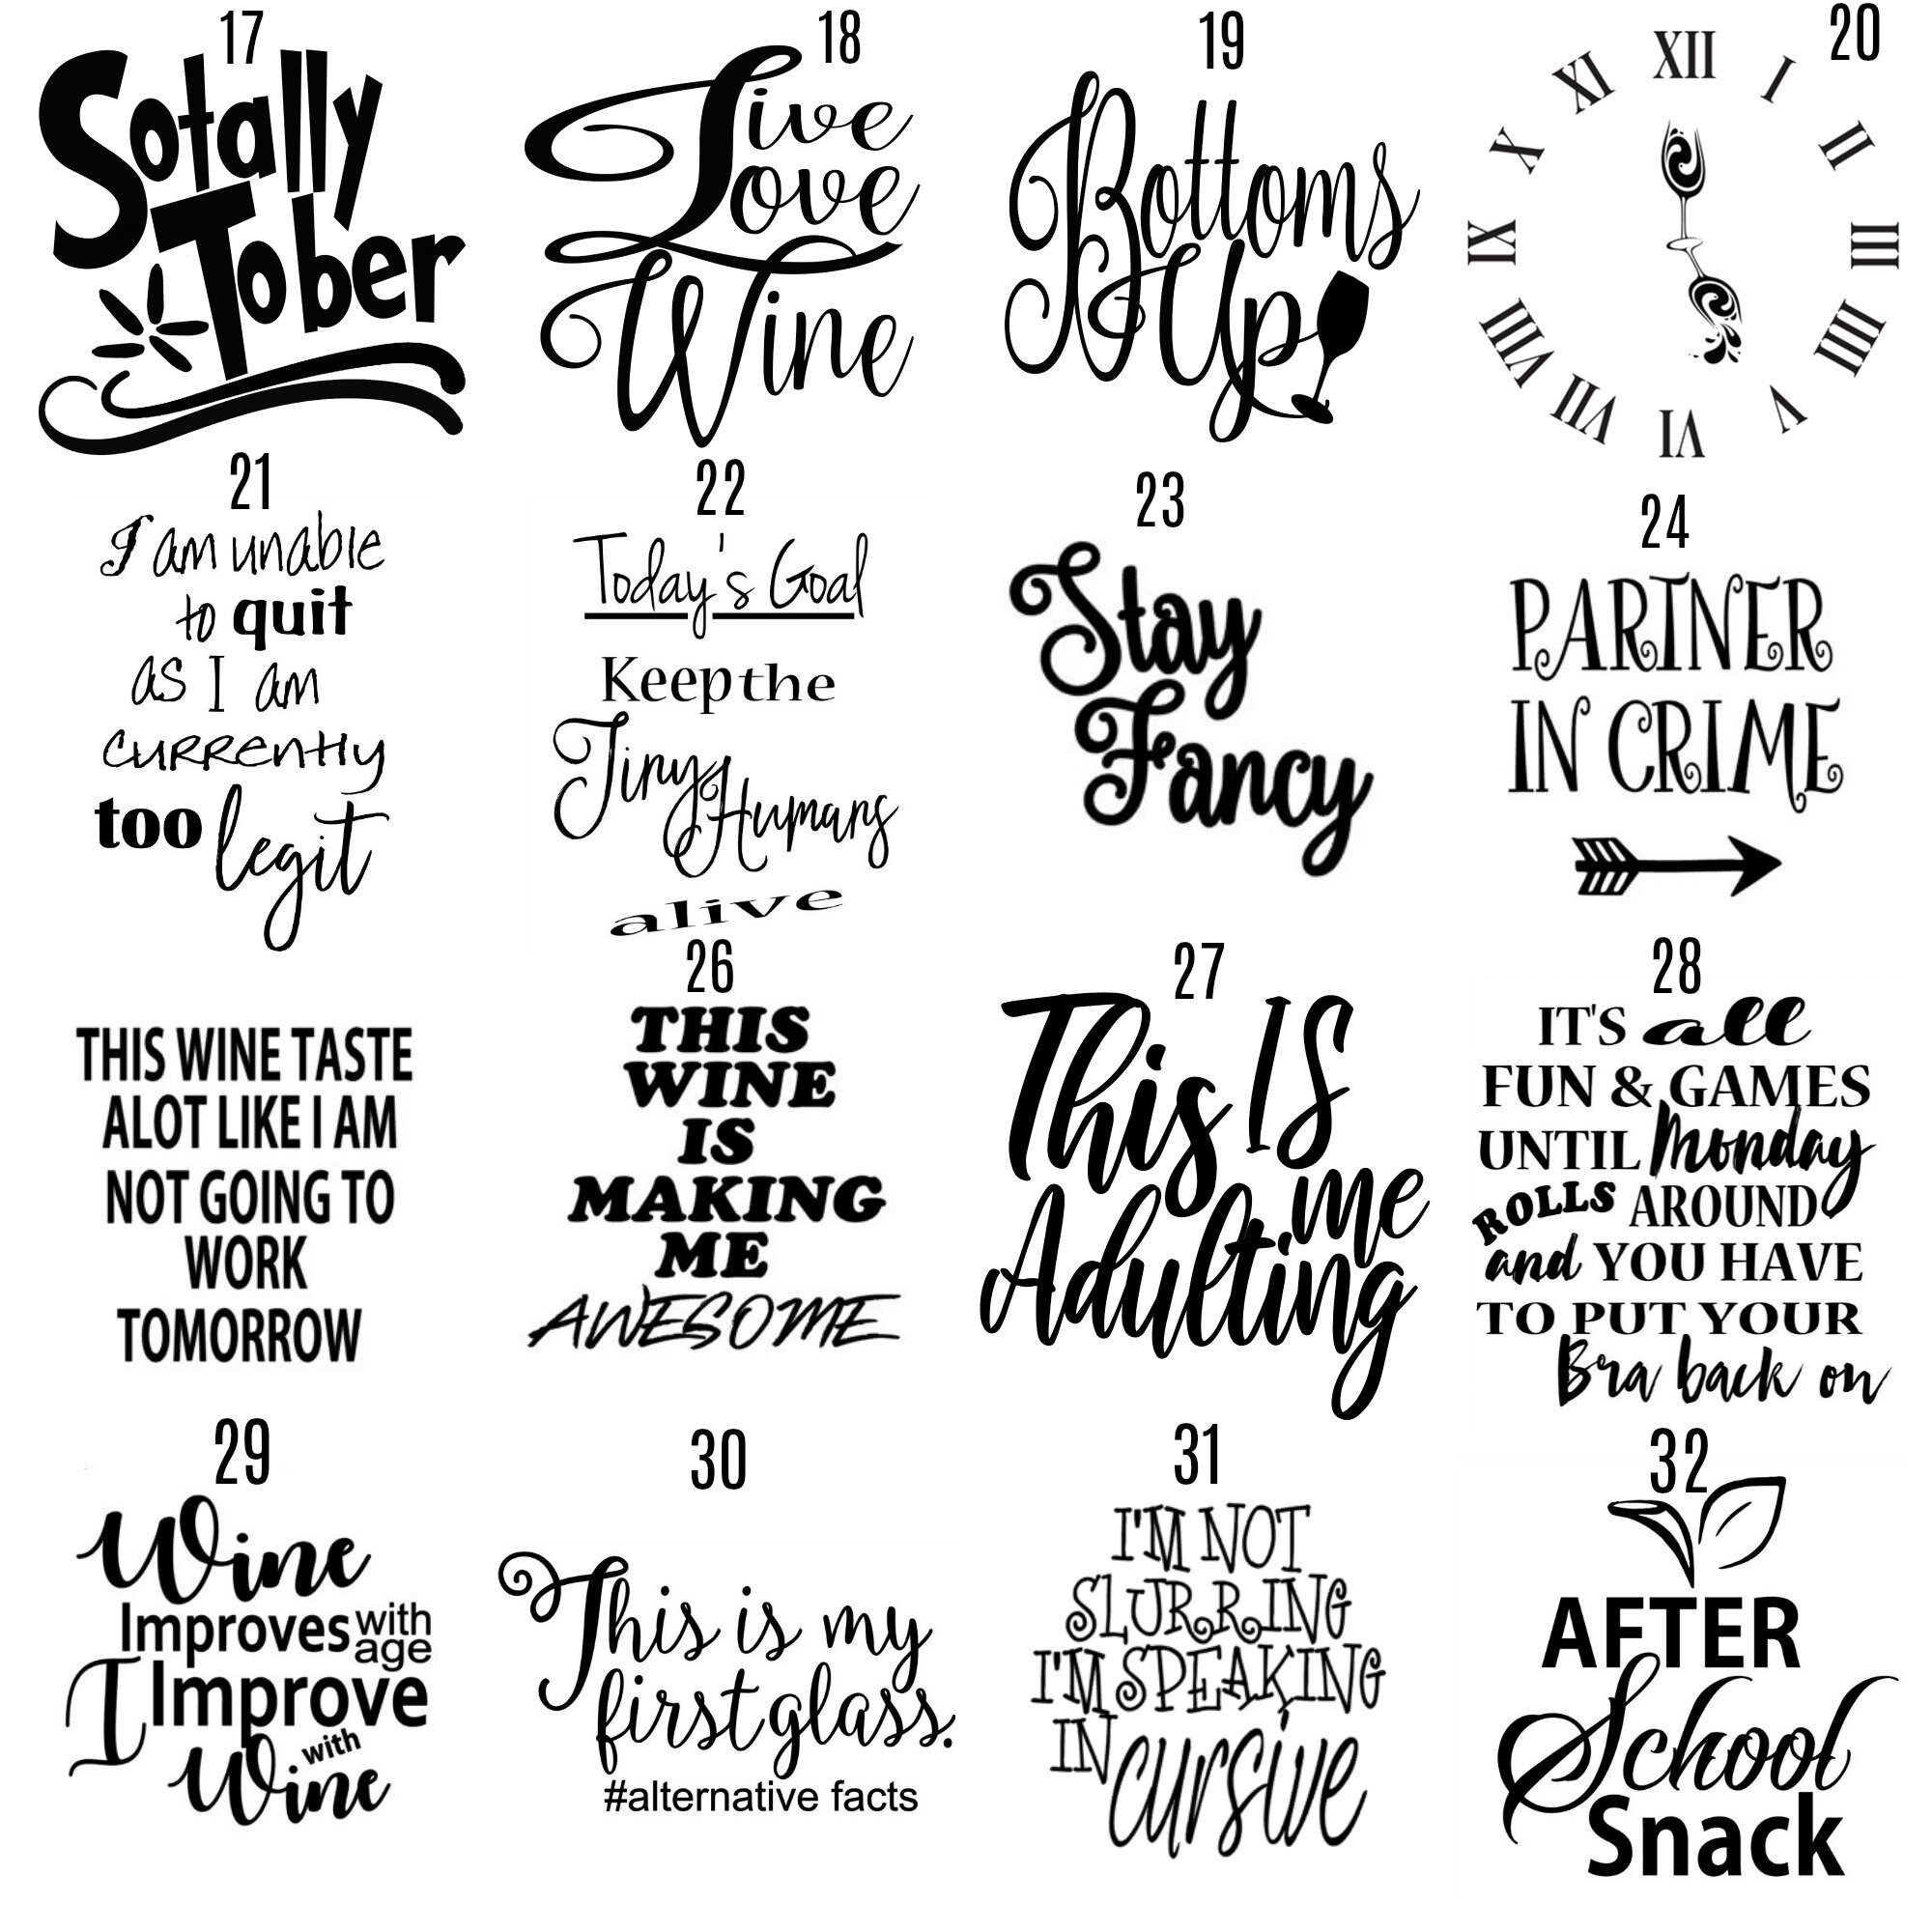 17
Sotally
Tober
18
Live
Love
Wine
19
Bottoms
Up
20
XII
I
II
III
IIII
V
VI
VII
VIII
IX
X
XI
21
I am unable
to quit
as I am
currently
too legit
22
Today's Goal
Keep the
Tiny Humans
alive
23
Stay
Fancy
24
PARTNER
IN CRIME
THIS WINE TASTE
ALOT LIKE I AM
NOT GOING TO
WORK
TOMORROW
26
THIS
WINE
IS
MAKING
ME
AWESOME
27
This IS
me
Adulting
28
IT'S all
FUN & GAMES
UNTIL Monday
ROLLS AROUND
and YOU HAVE
TO PUT YOUR
Bra back on
29
Wine
Improves with age
I Improve
with
Wine
30
This is my
first glass.
#alternative facts
31
I'M NOT
SLURRING
I'M SPEAKING
IN cursive
32
AFTER
School
Snack